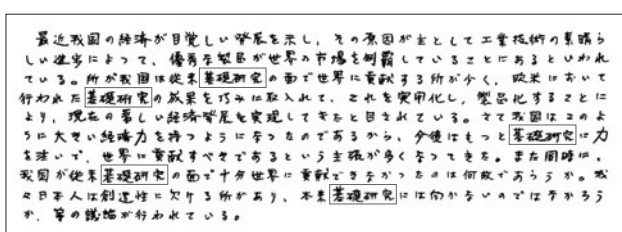 最近我国の経済が目覚しい発展を示し、その原因が主として工業技術の素晴ら
しい進歩によって、優秀な製品が世界の市場を制覇していることにあるといわれ
ている。所が我国は従来基礎研究の面で世界に貢献する所が少く、欧米において
行われた基礎研究の成果を巧みに取入れて、これを実用化し、製品化することに
より、現在の著しい経済発展を実現してきたと目されている。さて我国はこのよ
うに大きい経済力を持つようになったのであるから、今後はもっと基礎研究に力
を注いで、世界に貢献すべきであるという主張が多くなってきた。また同時に、
我国が従来基礎研究の面で十分世界に貢献できなかったのは何故であろうか。我
々日本人は創造性に欠ける所があり、本来基礎研究には向かないのではなかろう
か、等の議論が行われている。